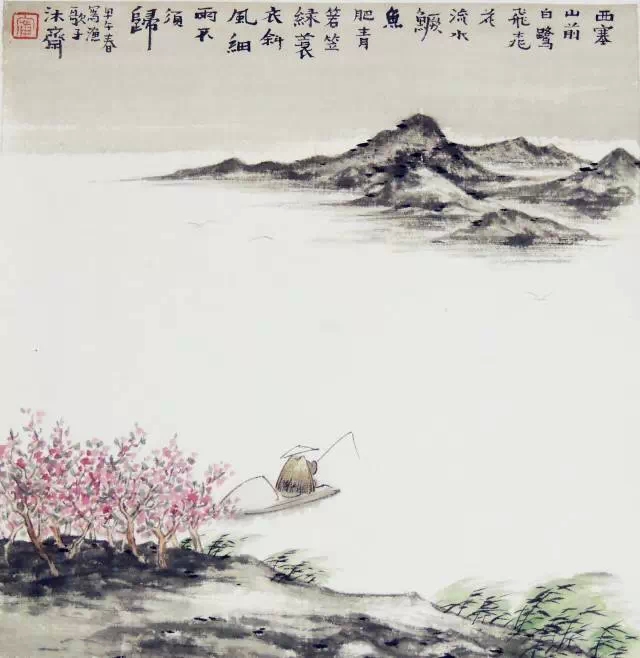 西塞
山前
白鷺
飛桃
花
流水
鱖
魚
肥青
箬笠
緑蓑
衣斜
風細
雨不
須
歸
甲午春
寫漁
歌子
沐齋